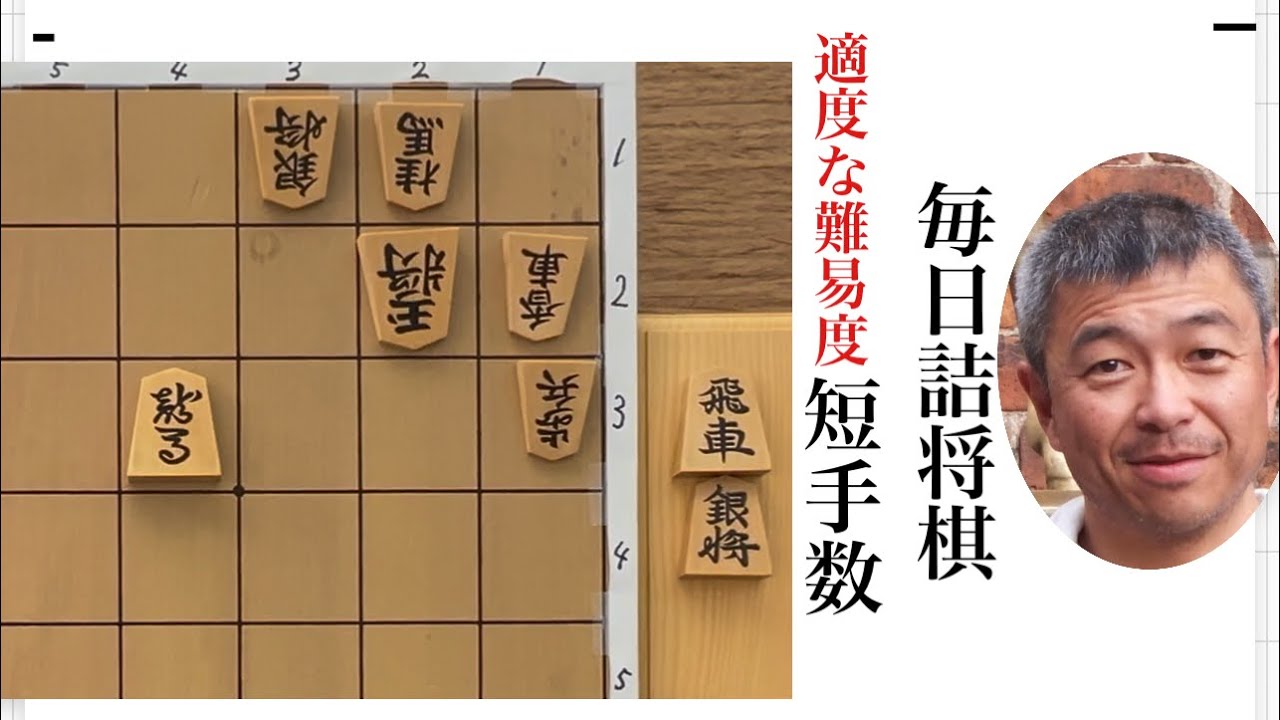 5 4 3 2 1
銀将
桂馬
1
玉将
香車
2
龍
歩兵
3
飛車
銀将
4
5
適度な難易度
短手数
毎日詰将棋